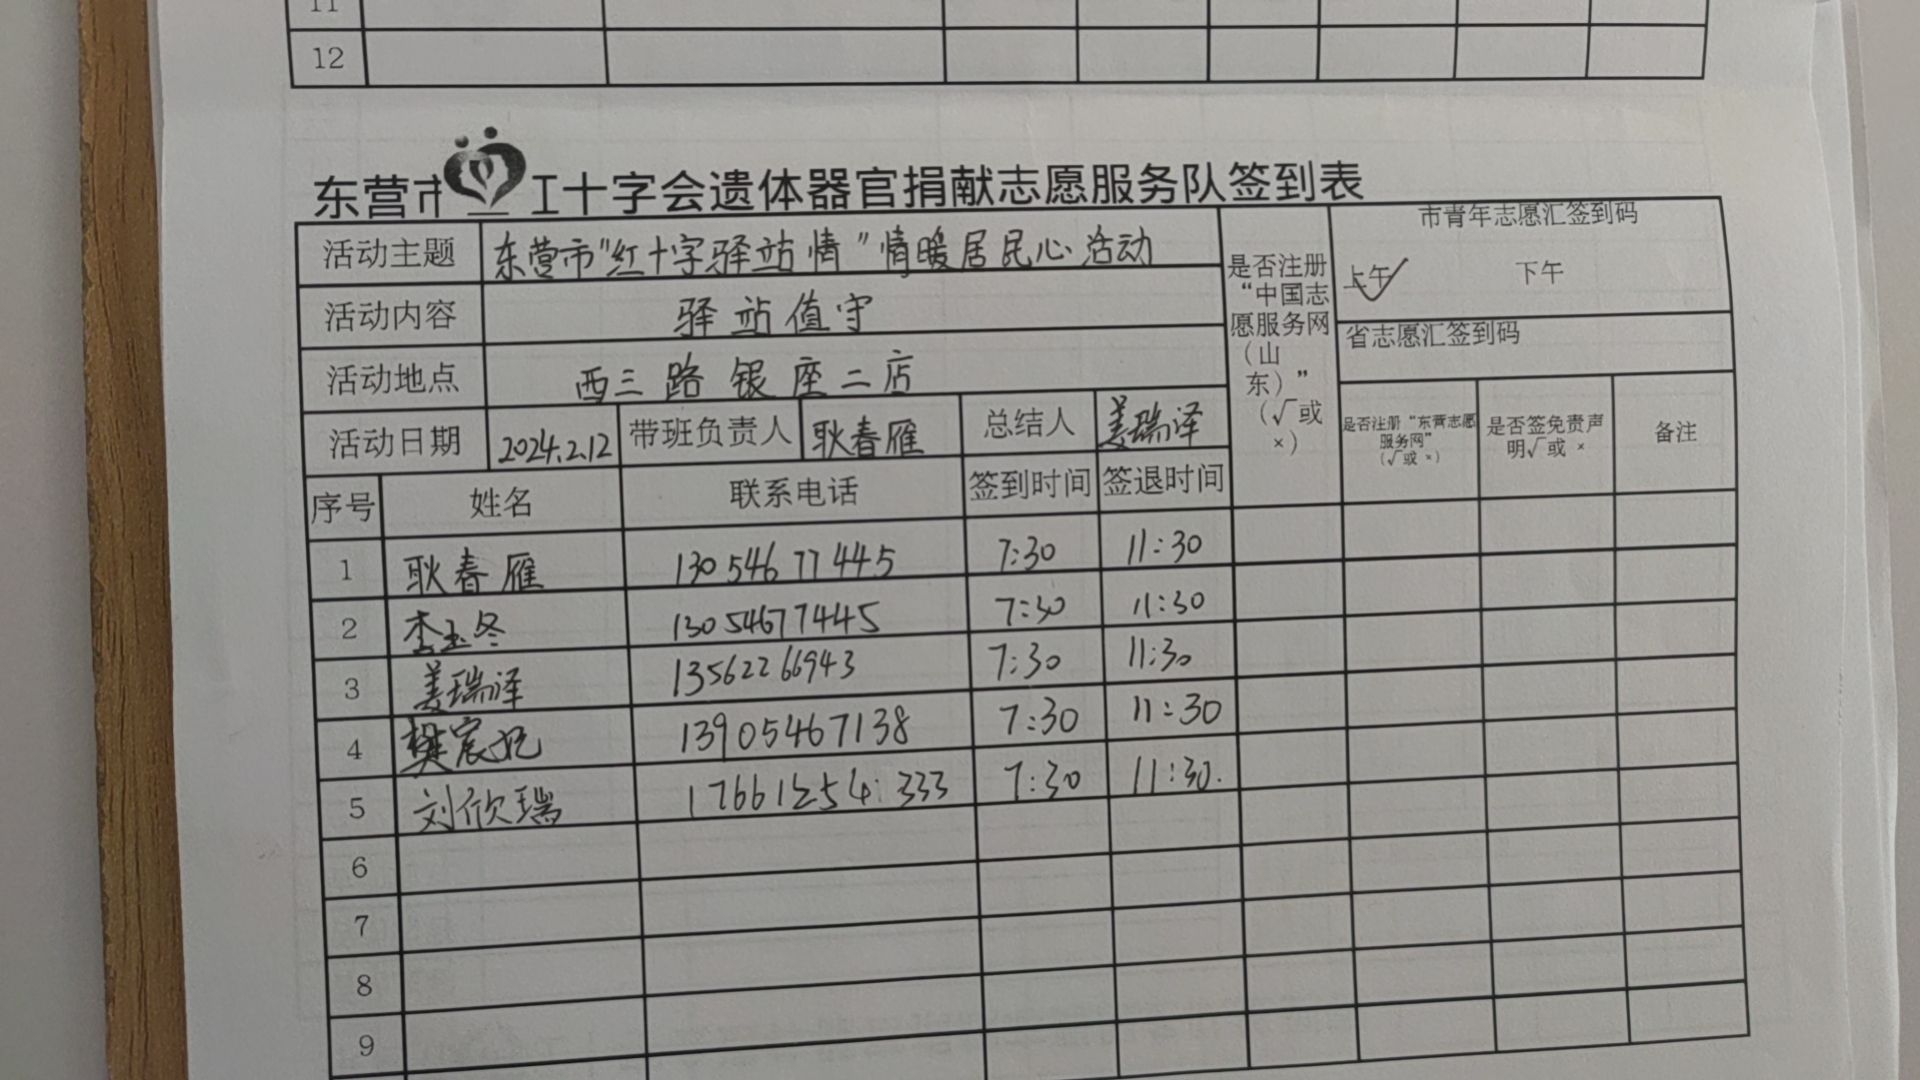 11
12
东营市 红十字会遗体器官捐献志愿服务队签到表
活动主题 东营市"红十字驿站情"情暖居民心活动
活动内容 驿站值守
活动地点 西三路银座二店
活动日期 2024.2.12 带班负责人 耿春雁 总结人 姜瑞泽
是否注册
“中国志
愿服务网
（山
东）”
（√或
×）
市青年志愿汇签到码
上午✓ 下午
省志愿汇签到码
是否注册“东营志愿
服务网”
（√或 ×）
是否签免责声
明√或 ×
备注
序号 姓名 联系电话 签到时间 签退时间
1 耿春雁 13054677445 7:30 11:30
2 李玉冬 13054677445 7:30 11:30
3 姜瑞泽 13562266943 7:30 11:30
4 樊宸 13905467138 7:30 11:30
5 刘欣瑞 17661254333 7:30 11:30.
6
7
8
9